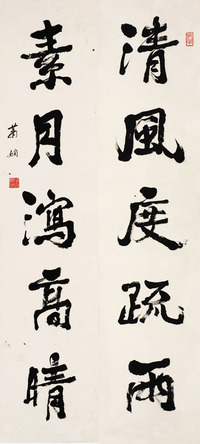 清風度疏雨
素月瀉高晴
蕭嫻